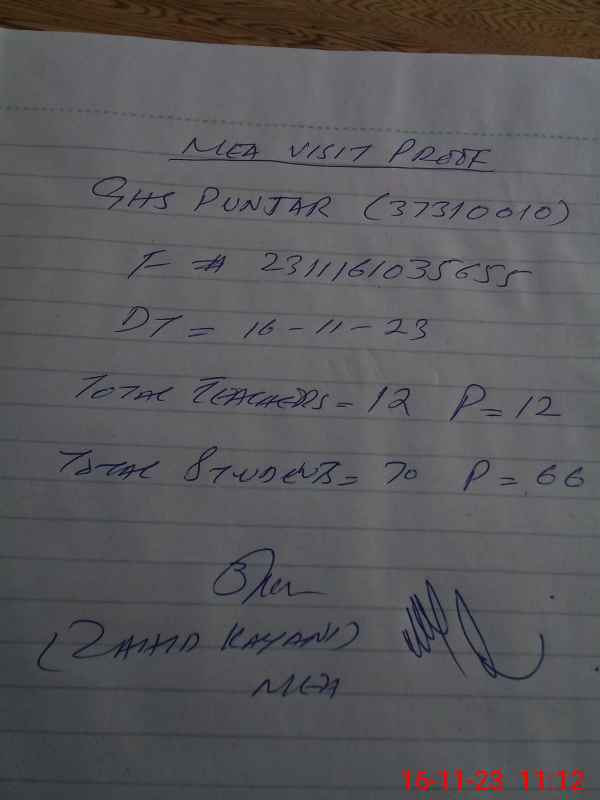 MEA VISIT PROOF
GHS PUNJAR (37310010)
F # 2311161035655
DT = 16-11-23
TOTAL TEACHERS = 12 P = 12
TOTAL STUDENTS = 70 P = 66
(ZAHID KAYANI)
MEA
16-11-23 11:12